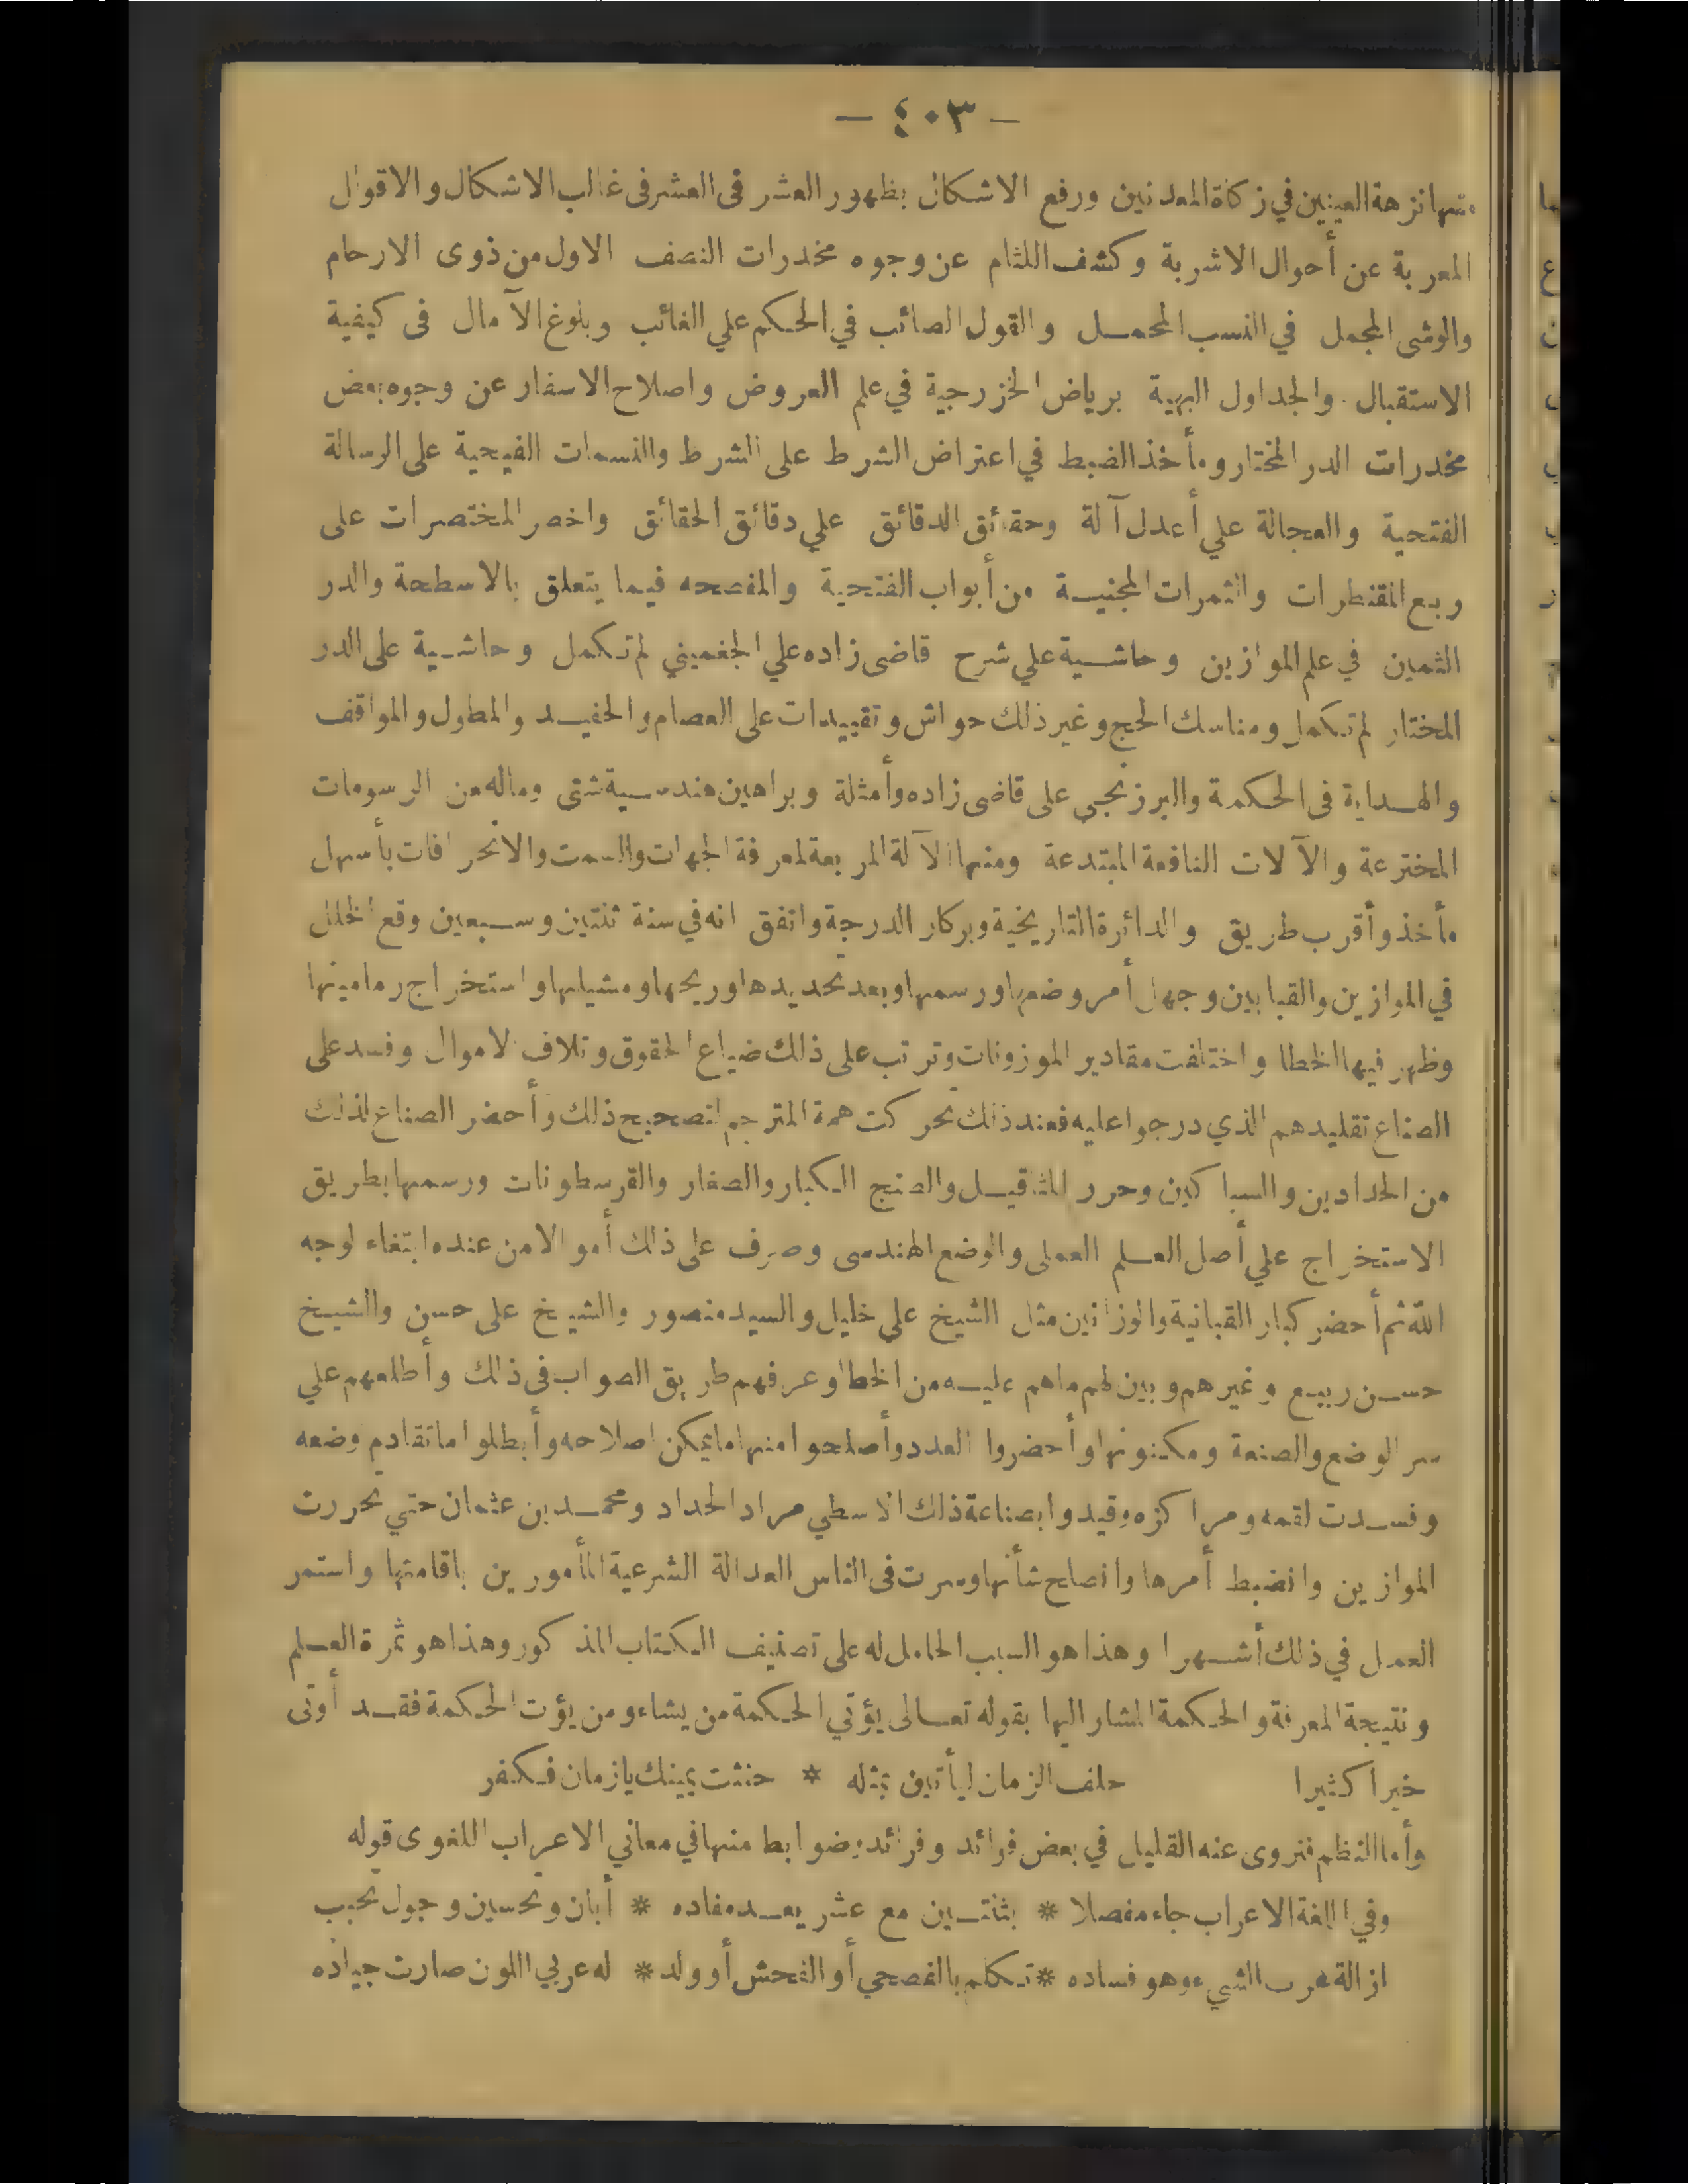 — ٤٠٣ —
منها نزهة العينين في زكاة المعدنين ورفع الاشكال بظهور العشر فى العشر فى غالب الاشكال والاقوال
المعربة عن أحوال الاشربة وكشف اللثام عن وجوه مخدرات النصف الاول من ذوى الارحام
والوشى المجمل في النسب المحمل والقول الصائب في الحكم علي الغائب وبلوغ الآمال فى كيفية
الاستقبال والجداول البهية برياض الخزرجية في علم العروض واصلاح الاسفار عن وجوه بعض
مخدرات الدر المختار ومأخذ الضبط في اعتراض الشرط على الشرط والنسمات الفيحية على الرسالة
الفتحية والعجالة علي أعدل آلة وحقائق الدقائق علي دقائق الحقائق واخصر المختصرات على
ربع المقنطرات والثمرات المجنية من أبواب الفتحية والمفصحه فيما يتعلق بالاسطحة والدر
الثمين في علم الموازين وحاشية علي شرح قاضى زاده علي الجغميني لم تكمل وحاشية على الدر
المختار لم تكمل ومناسك الحج وغير ذلك حواش وتقييدات على العصام والحفيد والمطول والمواقف
والهداية فى الحكمة والبرزنجي على قاضى زاده وأمثلة وبراهين هندسية شتى وماله من الرسومات
المخترعة والآلات النافعة المبتدعة ومنها الآلة المربعة لمعرفة الجهات والسمت والانحرافات بأسهل
مأخذ وأقرب طريق والدائرة التاريخية وبركار الدرجة واتفق انه في سنة ثنتين وسبعين وقع الخلل
في الموازين والقبابين وجهل أمر وضعها ورسمها وبعد تحديدها وريحها ومشيلها واستخراج رمامينها
وظهر فيها الخطا واختلفت مقادير الموزونات وترتب على ذلك ضياع الحقوق وتلاف الاموال وفسد على
الصناع تقليدهم الذي درجوا عليه فعند ذلك تحركت همة المترجم لتصحيح ذلك وأحضر الصناع لذلك
من الحدادين والسباكين وحرر المثاقيل والصنج الكبار والصغار والقرسطونات ورسمها بطريق
الاستخراج علي أصل العلم العملى والوضع الهندسى وصرف على ذلك أموالا من عنده ابتغاء لوجه
اللّه ثم أحضر كبار القبانية والوزانين مثل الشيخ علي خليل والسيد منصور والشيخ على حسن والشيخ
حسن ربيع وغيرهم وبين لهم ماهم عليه من الخطا وعرفهم طريق الصواب فى ذلك وأطلعهم علي
سر الوضع والصنعة ومكنونها وأحضروا العدد وأصلحوا منها مايمكن اصلاحه وأبطلوا ماتقادم وضعه
وفسدت لقمه ومراكزه وقيدوا بصناعة ذلك الاسطي مراد الحداد ومحمد بن عثمان حتي تحررت
الموازين وانضبط أمرها وانصلح شأنها وسرت فى الناس العدالة الشرعية المأمورين باقامتها واستمر
العمل في ذلك أشهرا وهذا هو السبب الحامل له على تصنيف الكتاب المذكور وهذا هو ثمرة العلم
ونتيجة المعرفة والحكمة المشار اليها بقوله تعالى يؤتي الحكمة من يشاء ومن يؤت الحكمة فقد أوتى
خيرا كثيرا حلف الزمان ليأتين بمثله * حنثت يمينك يازمان فكفر
وأما النظم فنروى عنه القليل في بعض فوائد وفرائد وضوابط منها في معاني الاعراب اللغوى قوله
وفي اللغة الاعراب جاء مفصلا * بثنتين مع عشر يعد مفاده * أبان وتحسين وجول تحبب
ازالة عرب الشيء وهو فساده * تكلم بالفصحي أو الفحش أو ولد * له عربي اللون صارت جياده